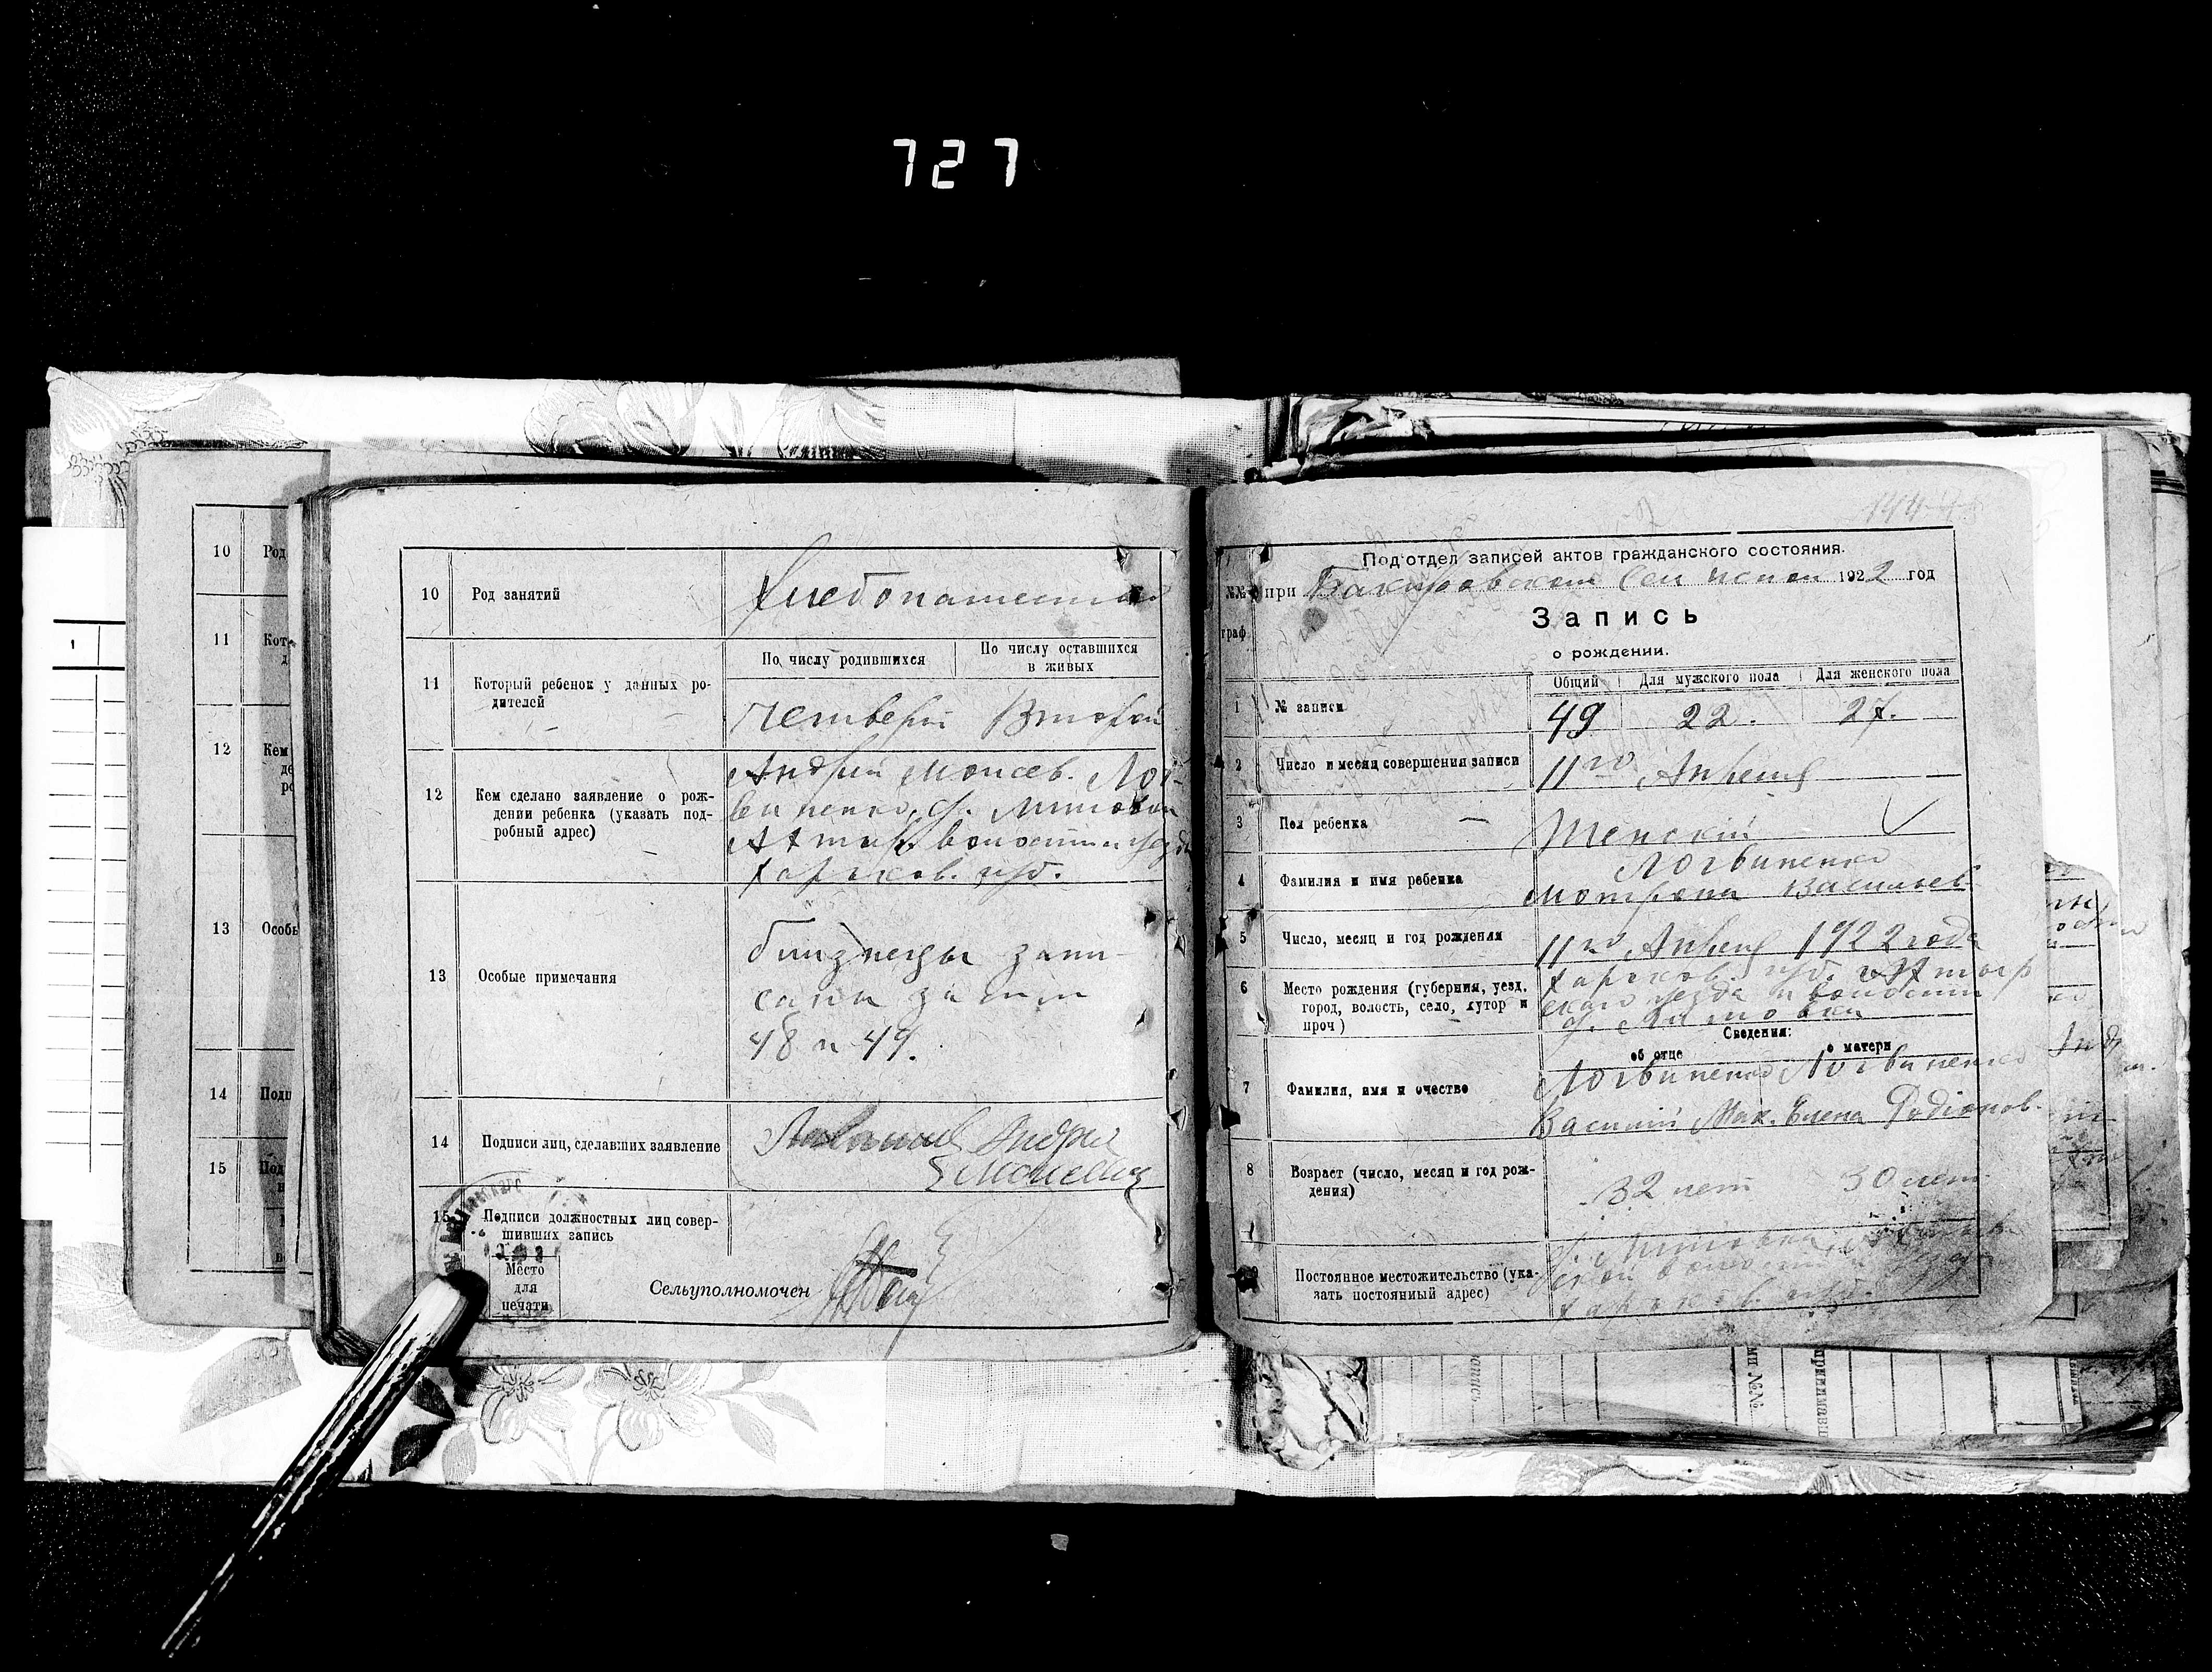 727
10 Род занятий Хлебопашество
11 Который ребенок у данных ро-
дителей
По числу родившихся
По числу оставшихся
в живых
четверт Второй
12 Кем сделано заявление о рож-
дении ребенка (указать под-
робный адрес)
Андрей Моисеев. Лог-
виненко, д. Литовки
Ахтыр. волости и уезда
Харьков. губ.
13 Особые примечания
близнецы запи-
саны за №№
48 и 49.
14 Подписи лиц, сделавших заявление
Андрей
Моисеев
15 Подписи должностных лиц совер-
шивших запись
Место
для
печати
Сельуполномочен
10 Род
11 Кот
12 Кем
13 Особ
14 Подп
15 Под
Под'отдел записей актов гражданского состояния.
№№
граф
при Бакировском Сел исполк 1922 год
Запись
о рождении.
Общий Для мужского пола Для женского пола
1 № записи 49 22. 27.
2 Число и месяц совершения записи 11го Апреля
3 Пол ребенка — Женский
4 Фамилия и имя ребенка
Логвиненко
Мотрона Васильев
5 Число, месяц и год рождения 11го Апреля 1922 года
6 Место рождения (губерния, уезд,
город, волость, село, хутор и
проч)
Харьков. губ. Ахтыр
ского уезда и волости
д. Литовки
Сведения:
об отце о матери
7 Фамилия, имя и очество
Логвиненко Логвиненко
Василий Мак. Елена Родионов.
8 Возраст (число, месяц и год рож-
дения)
32 лет 30 лет
Постоянное местожительство (ука-
зать постоянный адрес)
д. Литовка Ахтыр
ской волости и уезда
Харьков. губ.